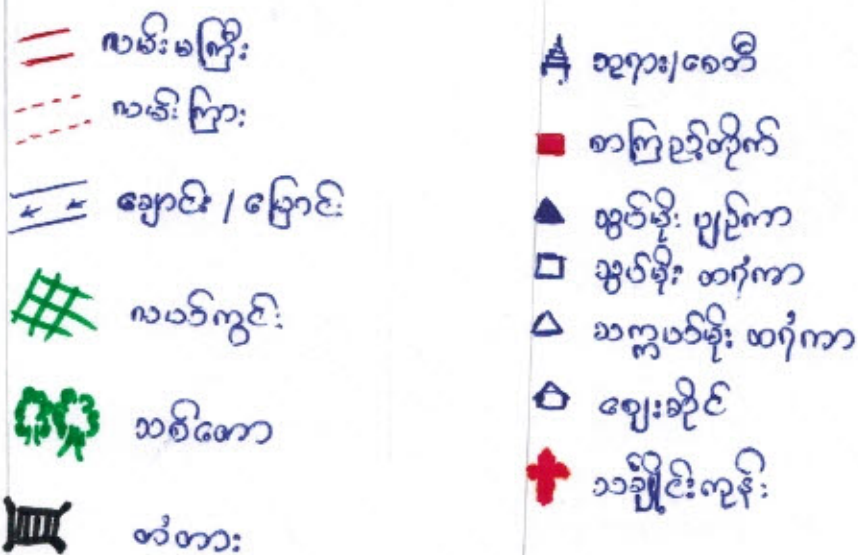 လမ်းမကြီး
လမ်းကြား
ချောင်း / မြောင်း
လယ်ကွင်း
သစ်တော
တံတား
ဘုရား/စေတီ
စာကြည့်တိုက်
သွပ်မိုး ပျဉ်ကာ
သွပ်မိုး ထရံကာ
သက္ကယ်မိုး ထရံကာ
ဈေးဆိုင်
သင်္ချိုင်းကုန်း